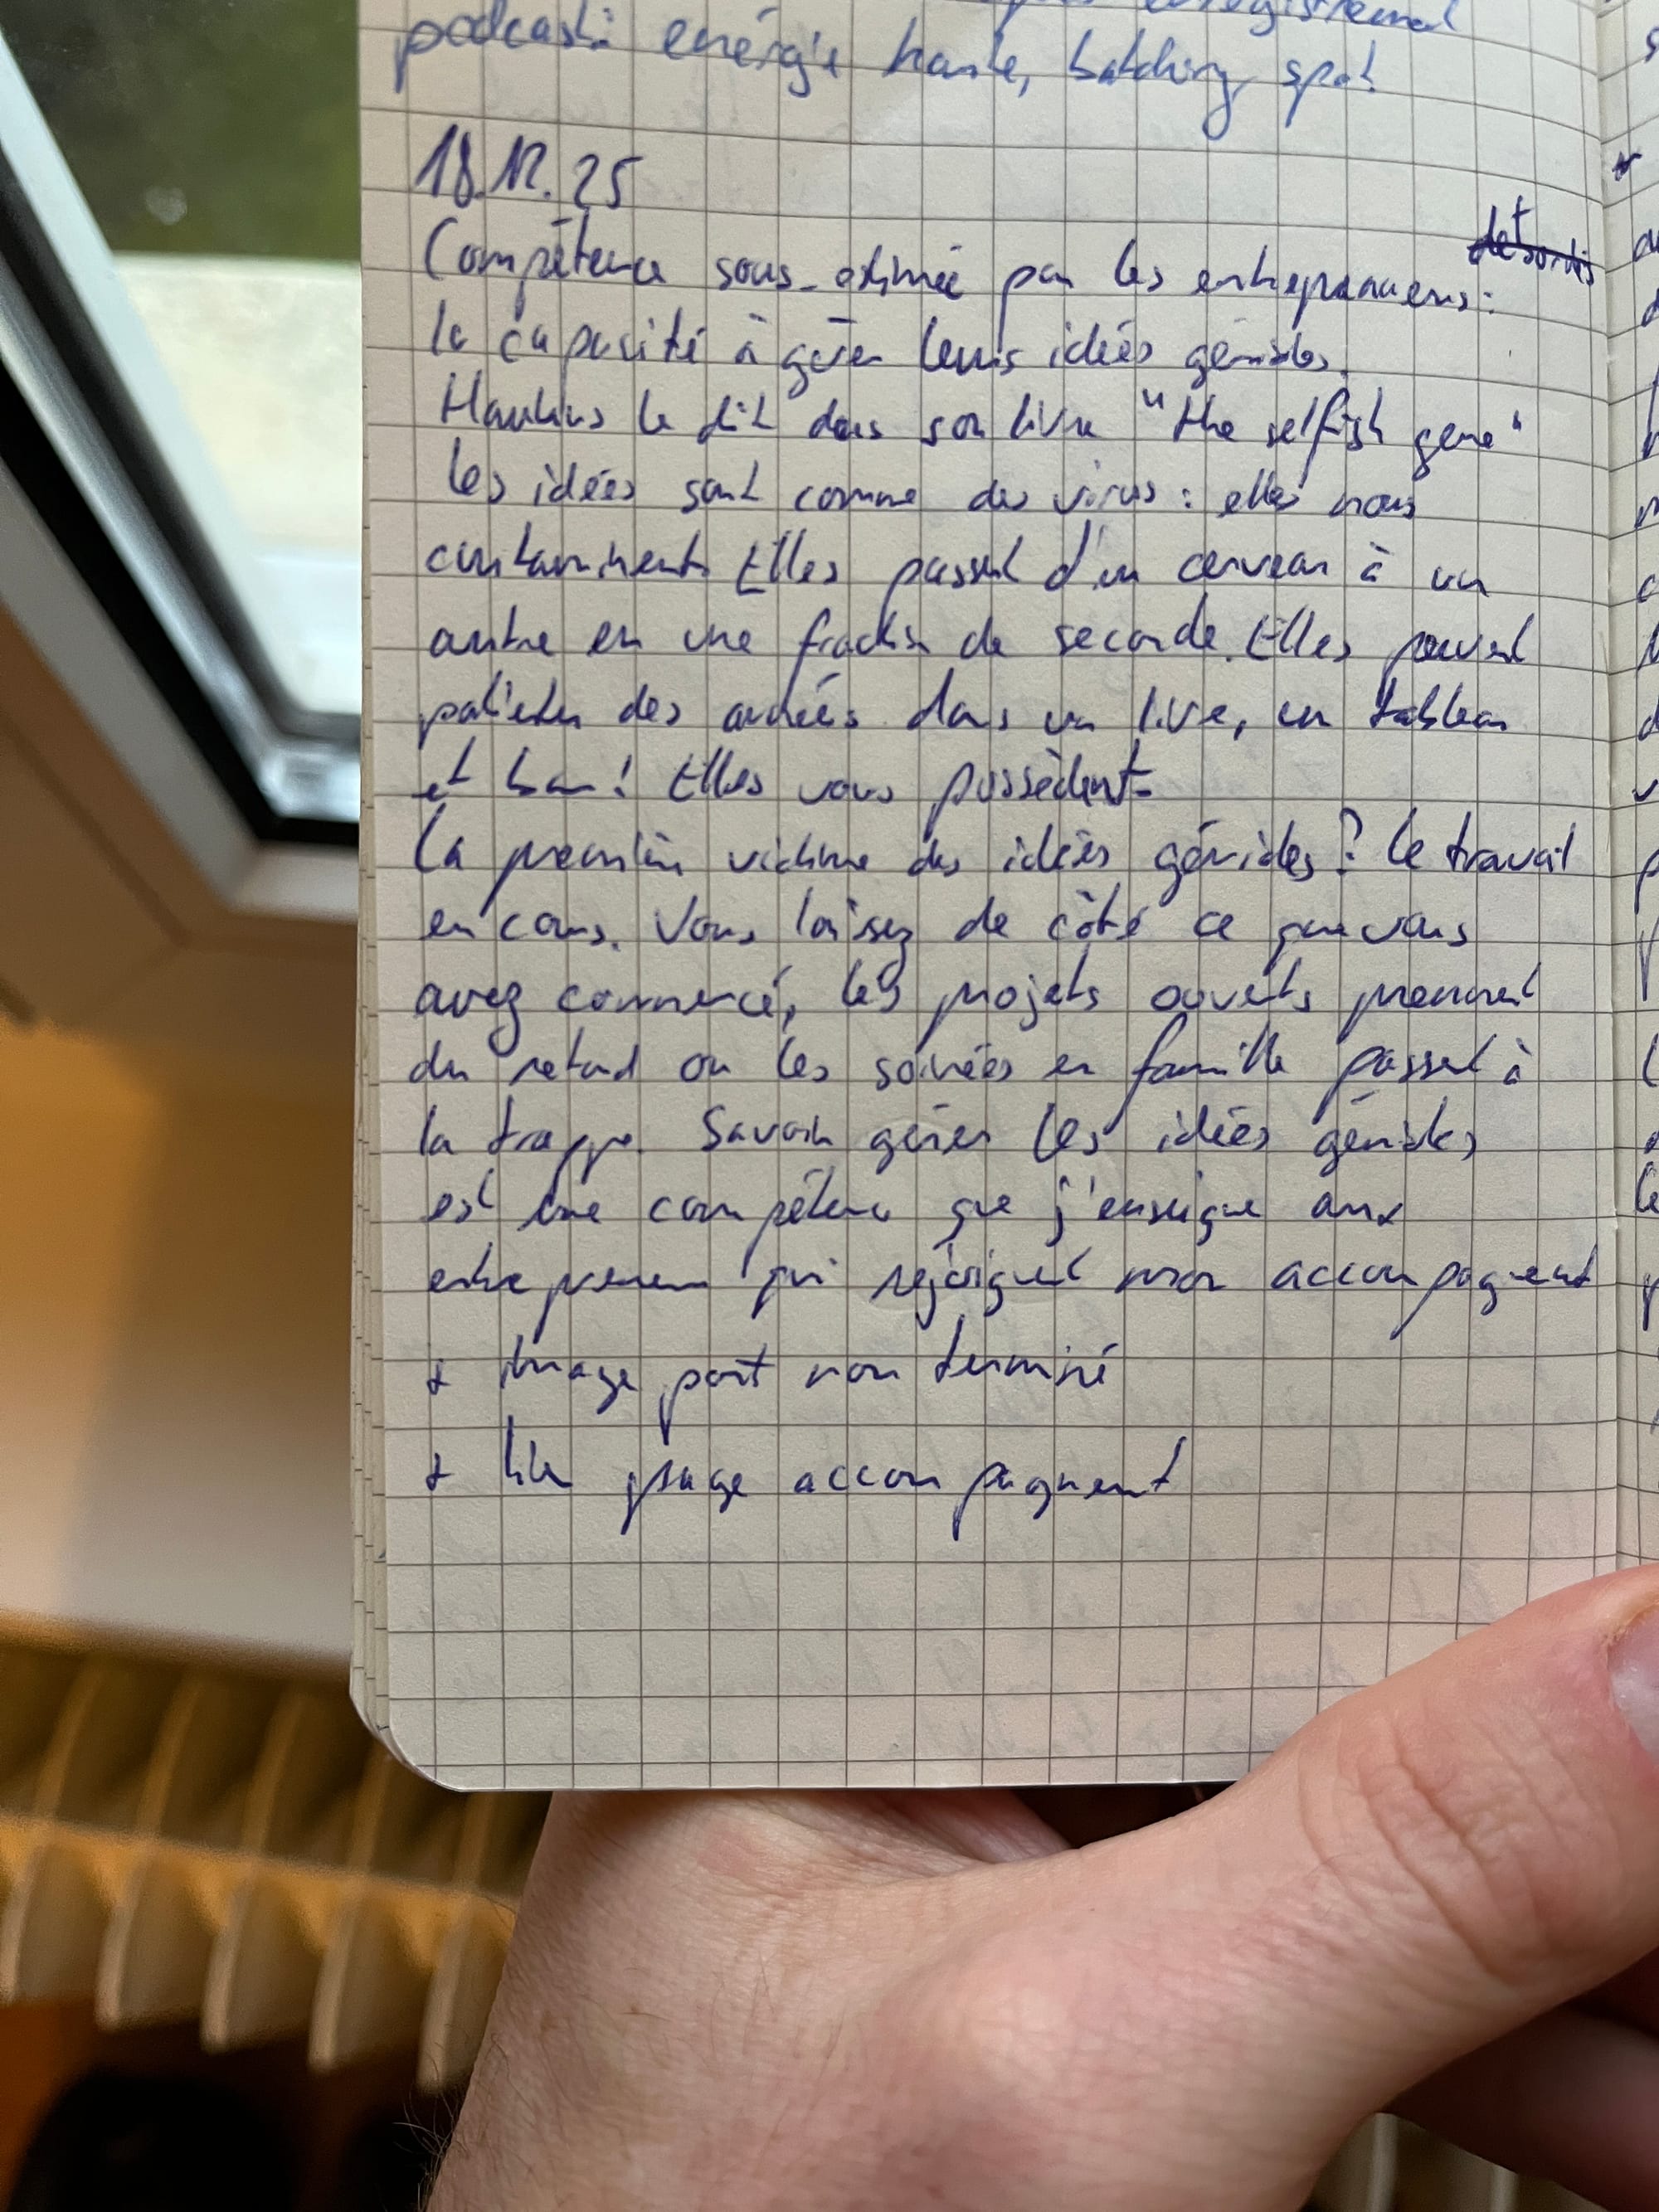 podcast: énergie haute, batching, spot
18.12.25
Compétence sous-estimée par les entrepreneurs:
la capacité à gérer leurs idées géniales.
Hawkins le dit dans son livre "the selfish gene"
les idées sont comme des virus : elles nous
contaminent. Elles passent d'un cerveau à un
autre en une fraction de seconde. Elles peuvent
patienter des années dans un livre, un tableau
et bam! Elles vous possèdent.
La première victime des idées géniales? Le travail
en cours. Vous laissez de côté ce que vous
avez commencé, les projets ouverts prennent
du retard ou les soirées en famille passent à
la trappe. Savoir gérer les idées géniales
est une compétence que j'enseigne aux
entrepreneurs qui rejoignent mon accompagnement
+ Image port non terminé
+ lien page accompagnement